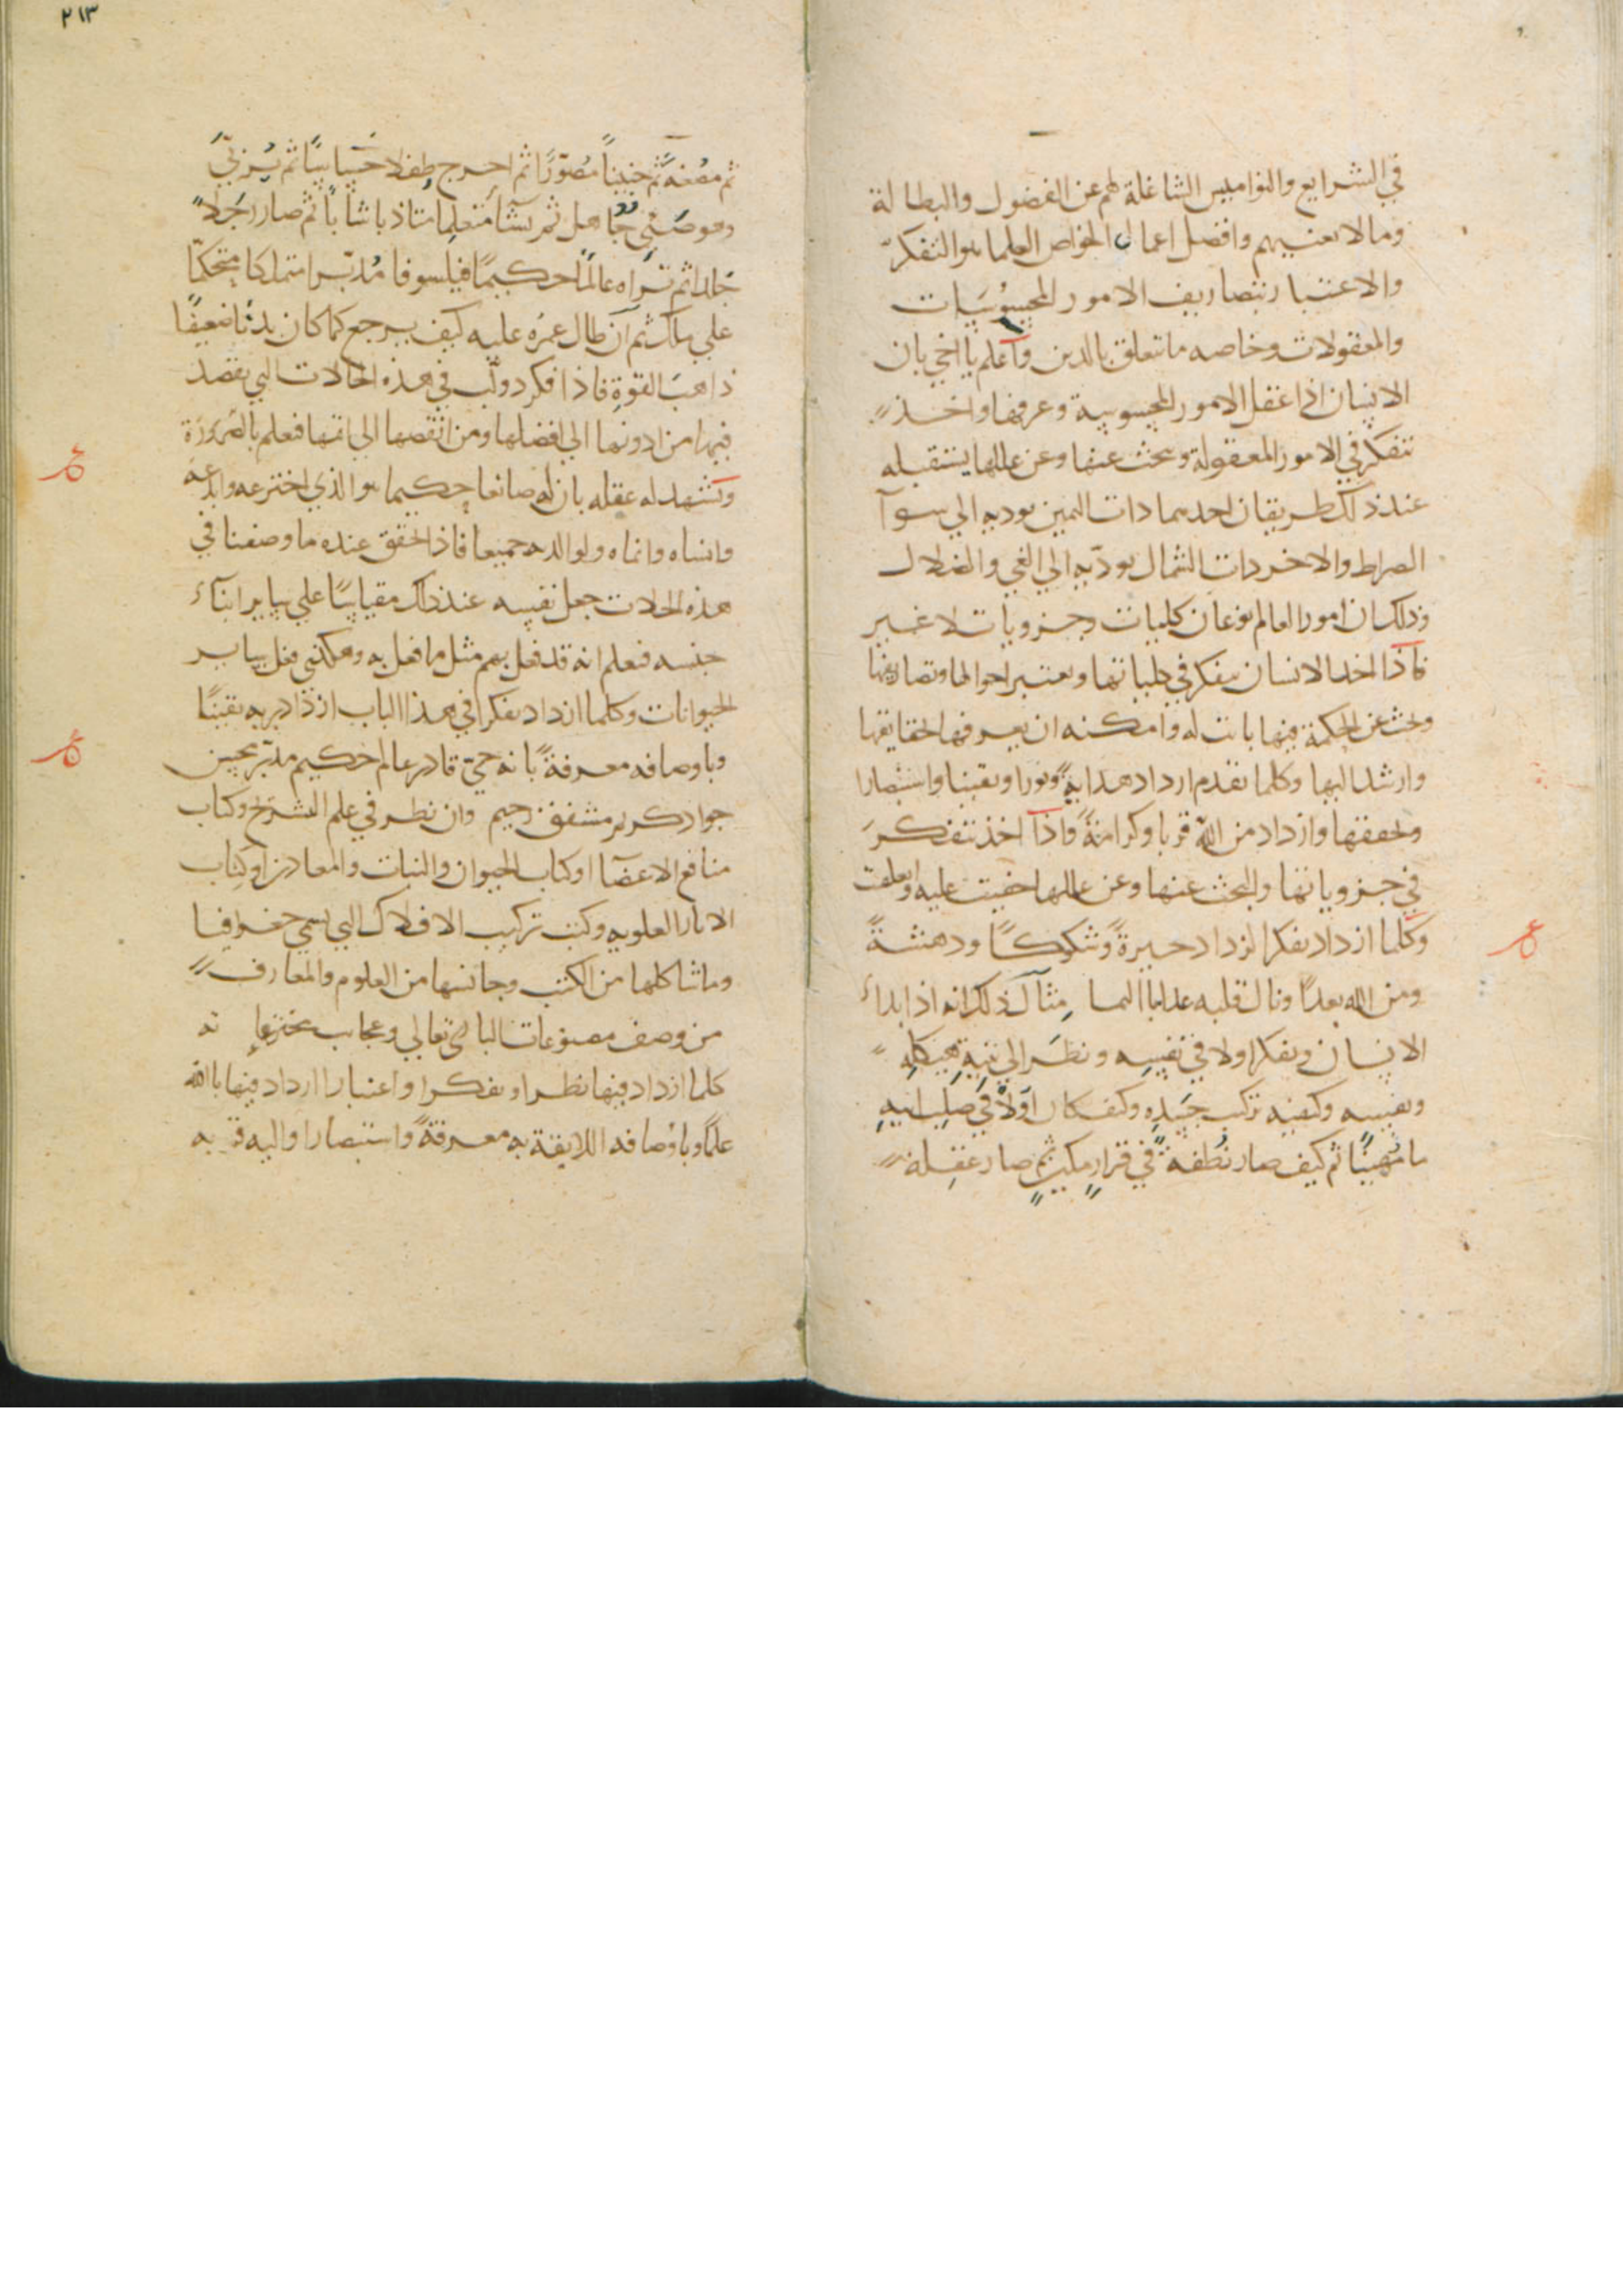 في الشرايع والنواميس الشاغلة لهم عن الفضول والبطالة
وما لا يعنيهم وافضل اعمال الخواص العلما هو التفكر
والاعتبار بتصاريف الامور المحسوسات
والمعقولات وخاصه ما يتعلق بالدين واعلم يا اخي بان
الانسان اذا عقل الامور المحسوسة وعرفها واخذ
يتفكر في الامور المعقولة وبحث عنها وعن عللها يستقبله
عند ذلك طريقان احدهما ذات اليمين يوديه الي سوآ
الصراط والاخر ذات الشمال يودّيه الي الغي والضلال
وذلك ان امور العالم نوعان كليات وجزويات لا غير
فاذا اخذ الانسان يتفكر في كلياتها ويعتبر احوالها وتصاريفها
وبحث عن الحكمة فيها بانت له وامكنه ان يعرفها بحقايقها
وارشد اليها وكلما تقدم ازداد هدايةً ونورا ويقينا واستبصارا
وتحققها وازداد من الله قربا وكرامةً واذا اخذ يتفكر
في جزوياتها والبحث عنها وعن عللها خفيت عليه وانغلقت
وكلما ازداد تفكرا ازداد حيرةً وشكوكًا ودهشةً
ومن الله بعدًا ونال قلبه عذابا اليما مثال ذلك انه اذا بداء
الانسان وتفكر اولا في نفسِه ونظَر الي بنيةِ هيكلِهِ
ونفسه وكيفيه تركيب جَسَدِهِ وكيف كان اولاً في صلبِ ابيهِ
ما مُهينًا ثم كيف صار نُطفةً في قرارٍ مكينٍ ثم صار علقة
٢١٣
ثم مضغةً ثم جنينًا مُصوّرًا ثم اخرج طفلا حَسِّاسًا ثم يُربّيَ
وهو صَبيّ جاهل ثم نشأ مُتعلِما متاذبا شابًا ثم صار رَجلًا
جَلدا ثم تراه عالمًا حكيمًا فيلسوفا مُدبّرا متملكا متحكمًا
علي ملك ثم ان طال عمرُه عليه كيف يرجع كما كان بدئًا ضعيفًا
ذاهبَ القوةِ فاذا فكر دولّب في هذه الحالات التي يقصد
فيها من ادونها الي افضلها ومن انقصها الي اتمها فعلم بالضرورة
وتشهد له عقله بان له صانعا حكيما هو الذي اخترعه وابدعه
وانشاه وانماه ولوالديه جميعا فاذا تحقق عنده ما وصفنا في
هذه الحالات جعل نفسه عند ذلك مقياسًا علي ساير ابنآء
جنسه فعلم انه قد فعل بهم مثل ما فعل به وهكذي فعل بساير
الحيوانات وكلما ازداد تفكرا في هذا الباب ازداد بربه يقينًا
وباوصافه معرفةً بانه حيّ قادر عالم حكيم مدبّر محسن
جواد كريم مشفق رحيم وان نظر في علم التشريح وكتاب
منافع الاعضآ او كتاب الحيوان والنبات والمعادن او كتاب
الاثار العلويه وكتب تركيب الافلاك التي تسمي جغرافيا
وما شاكلها من الكتب وجانسها من العلوم والمعارف
من وصف مصنوعات الباري تعالي وعجايب مخترعاته
كلما ازداد فيها نظرا وتفكرا واعتبارا ازداد فيها بالله
علمًا وباوصافه اللايقة به معرفةً واستبصارا واليه قربه